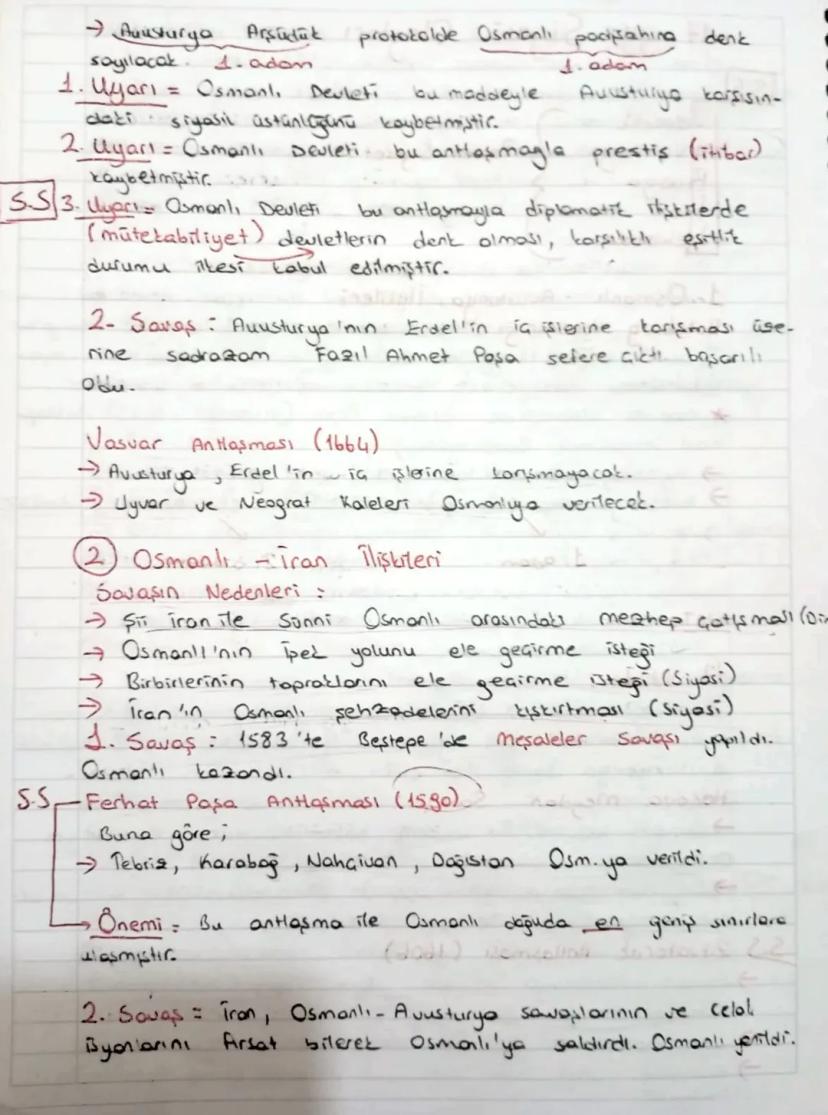 → Avusturya Arşüdük protokolde Osmanlı padişahına denk
sayılacak. 1. adam 1. adam
1. Uyarı = Osmanlı Devleti bu maddeyle Avusturya karşısın-
daki siyasil üstünlüğünü kaybetmiştir.
2. Uyarı = Osmanlı Devleti bu antlaşmayla prestis (itibar)
kaybetmiştir.
S.S 3. Uyarı = Osmanlı Devleti bu antlaşmayla diplomatik ilişkilerde
(mütekabiliyet) devletlerin denk olması, karşılıklı eşitlik
durumu ilkesi kabul edilmiştir.
2- Savaş : Avusturya'nın Erdel'in iç işlerine karışması üze-
rine sadrazam Fazıl Ahmet Paşa sefere çıktı başarılı
oldu.
Vasvar Antlaşması (1664)
→ Avusturya, Erdel'in iç işlerine karışmayacak.
→ Uyvar ve Neograt Kaleleri Osmanlıya verilecek.
2 Osmanlı - İran İlişkileri
Savaşın Nedenleri :
→ Şii İran ile Sünni Osmanlı arasındaki mezhep çatışması (Di
→ Osmanlı'nın İpek yolunu ele geçirme isteği
→ Birbirlerinin topraklarını ele geçirme isteği (Siyasi)
→ İran'ın Osmanlı şehzadelerini kışkırtması (Siyasi)
1. Savaş : 1583'te Beştepe'de Meşaleler Savaşı yapıldı.
Osmanlı kazandı.
S.S Ferhat Paşa Antlaşması (1590)
Buna göre ;
→ Tebriz, Karabağ, Nahçivan, Dağıstan Osm.ya verildi.
→ Önemi = Bu antlaşma ile Osmanlı doğuda en geniş sınırlara
ulaşmıştır.
2. Savaş = İran, Osmanlı - Avusturya savaşlarının ve Celal
isyanlarını fırsat bilerek Osmanlı'ya saldırdı. Osmanlı yenildi.